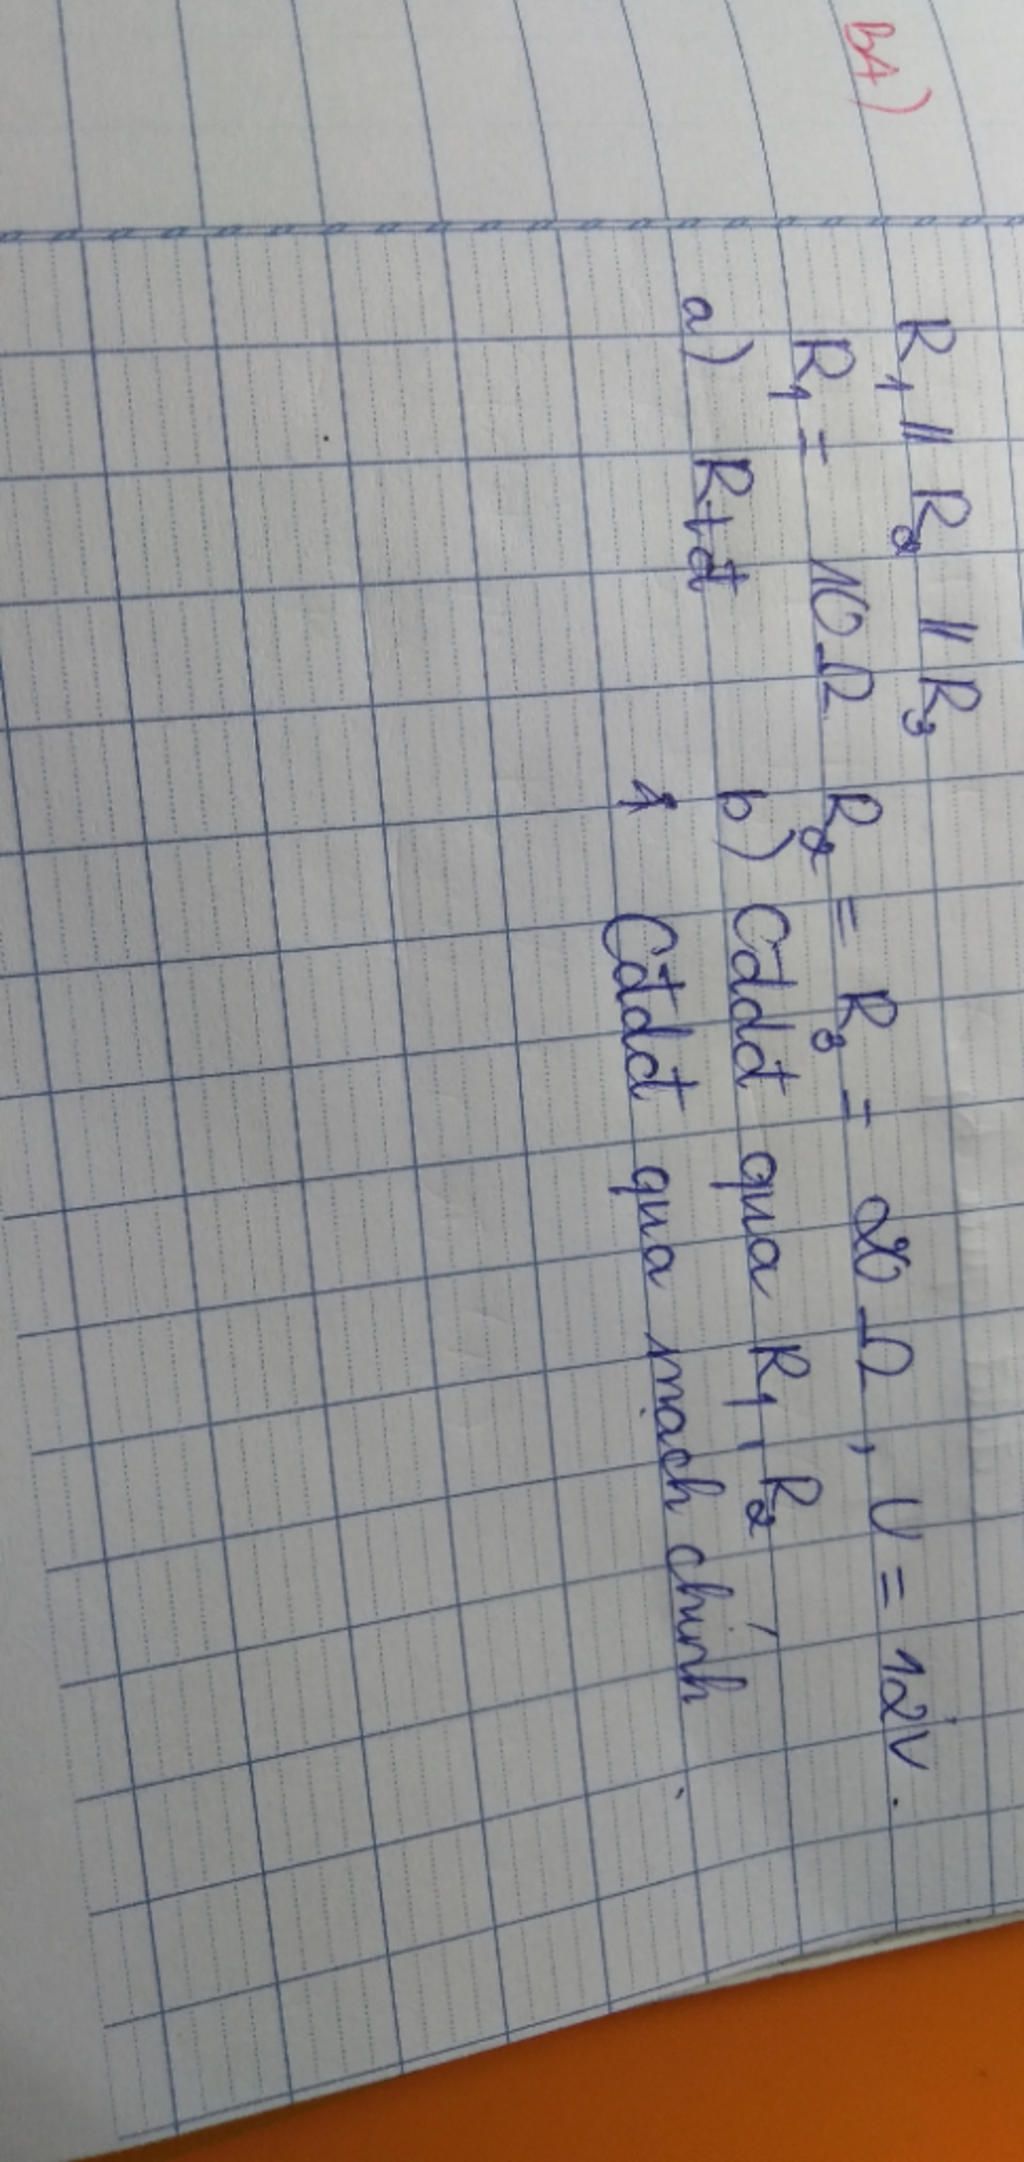 B4)
R₁ // R₂ // R₃
R₁ = 10Ω R₂ = R₃ = 20Ω, U = 12V.
a) Rtđ b) Cđdđ qua R₁, R₂
Cđdđ qua mạch chính